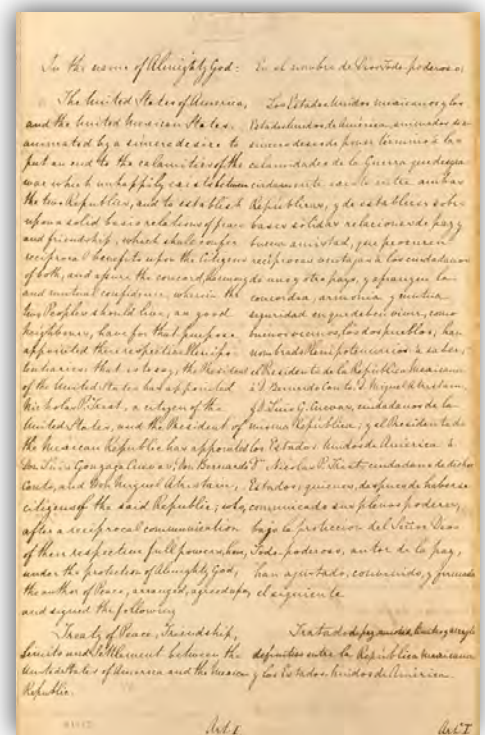 In the name of Almighty God:
The United States of America,
and the United Mexican States,
animated by a sincere desire to
put an end to the calamities of the
war which unhappily exists between
the two Republics, and to establish
upon a solid basis relations of peace
and friendship, which shall confer
reciprocal benefits upon the citizens
of both, and assure the concord, harmony
and mutual confidence, wherein the
two Peoples should live, as good
Neighbours, have for that purpose
appointed their respective Plenipo-
tentiaries: that is to say, the President
of the United States has appointed
Nicholas P. Trist, a citizen of the
United States, and the President of
the Mexican Republic has appointed
Don Luis Gonzaga Cuevas, Don Bernardo
Couto, and Don Miguel Atristain,
citizens of the said Republic; who,
after a reciprocal communication
of their respective full powers, have,
under the protection of Almighty God,
the author of Peace, arranged, agreed upon,
and signed the following
Treaty of Peace, Friendship,
Limits and Settlement between the
United States of America and the Mexican
Republic.
Art I
En el nombre de Dios Todo-poderoso:
Los Estados Unidos mexicanos y los
Estados Unidos de América, animados de un
sincero deseo de poner término á las
calamidades de la Guerra que desgra-
ciadamente existe entre ambas
Repúblicas, y de establecer sobre
bases sólidas relaciones de paz y
buena amistad, que procuren
recíprocas ventajas á los ciudadanos
de uno y otro pays, y afiancen la
concordia, armonia y mutua
seguridad en que deben vivir, como
buenos vecinos, los dos pueblos; han
nombrado Plenipotenciarios á saber,
el Presidente de la República Mexicana
á D. Bernardo Couto, D. Miguel Atristain,
y D. Luis G. Cuevas, ciudadanos de la
misma República; y el Presidente de
los Estados Unidos de América á
D. Nicolas P. Trist, ciudadano de dichos
Estados; quienes, despues de haberse
comunicado sus plenos poderes,
bajo la proteccion del Señor Dios
Todo-poderoso, autor de la paz,
han ajustado, convenido, y firmado
el siguiente
Tratado de paz, amistad, límites y arreglo
definitivo entre la República mexicana
y los Estados Unidos de América
Art I